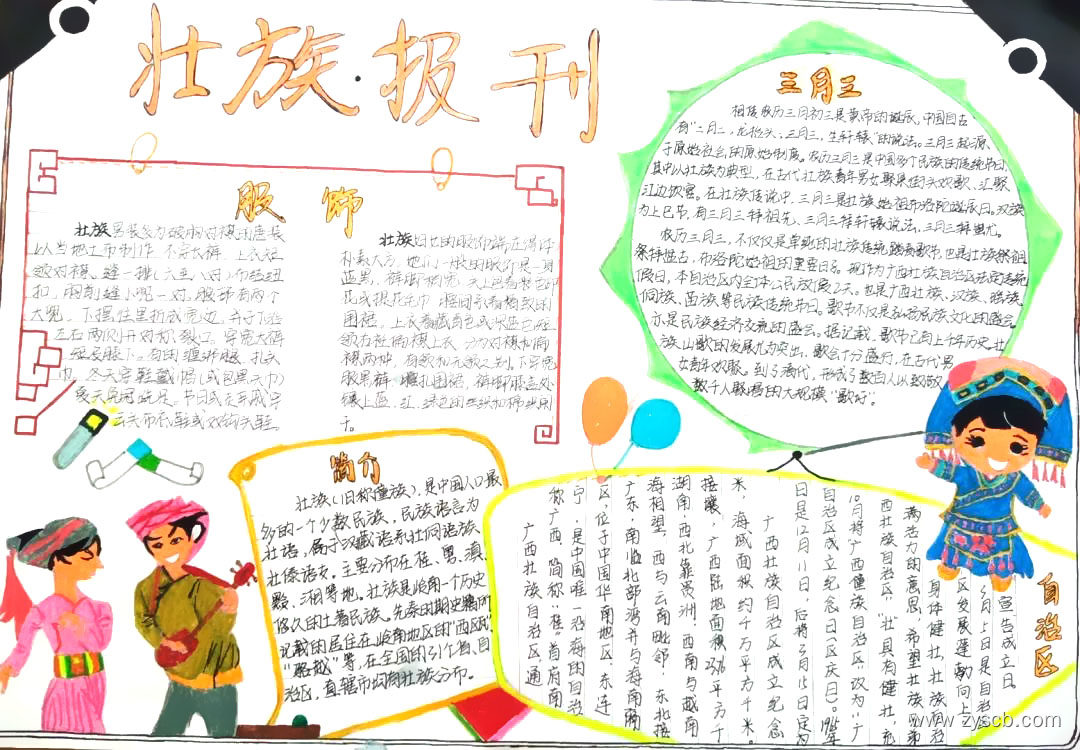 壮族·报刊
服饰
壮族男装多为破胸对襟的唐装
以当地土布制作,不穿长裤,上衣短
领对襟、缝一排(六至八对)布结纽
扣,胸前缝小兜一对,腹部有两个
大兜,下摆往里折成宽边,并于下沿
左右两侧开对称裂口。穿宽大裤
短及膝下。有的缠绑腿、扎头
巾。冬天穿鞋戴帽(或包黑头巾)
夏天免冠跣足。节日或走亲戚穿
云头布底鞋或双钩头鞋。
壮族妇女的服饰端庄得体
朴素大方,她们一般的服饰是一身
蓝黑,裤脚稍宽,头上包着彩色印
花或提花毛巾,腰间系着精致的
围裙。上衣着藏青色或深蓝色短
领右衽偏襟上衣,分为对襟和偏
襟两种,有领和无领之别。下穿宽
肥黑裤,腰扎围裙,裤脚膝盖处
镶上蓝、红、绿色的丝织和棉织阑
干。
三月三
相传农历三月初三是黄帝的诞辰,中国自古
有“二月二,龙抬头;三月三,生轩辕”的说法。三月三起源
于原始社会的原始制度。农历三月三是中国多个民族的传统节日,
其中以壮族为典型。在古代壮族青年男女聚集街头欢歌、汇聚
江边饮宴。在壮族传说中,三月三是壮族始祖布洛陀诞辰日。汉族
为上巳节,有三月三拜祖先、三月三拜轩辕说法,三月三拜蚩尤。
农历三月三,不仅仅是单纯的壮族传统踏青歌节,也是壮族祭祖
祭拜盘古、布洛陀始祖的重要日子。现作为广西壮族自治区法定传统
假日,本自治区内全体公民放假2天。也是广西壮族、汉族、瑶族、
侗族、苗族等民族传统节日。歌节不仅是弘扬民族文化的盛会,
亦是民族经济交流的盛会。据记载,歌节已有上千年历史,壮
族山歌的发展尤为突出,歌会十分盛行,在古代男
女青年欢歌。到了清代,形成了数百人以致
数千人聚唱的大规模“歌圩”。
简介
壮族(旧称僮族),是中国人口最
多的一个少数民族,民族语言为
壮语,属于汉藏语系壮侗语族
壮傣语支。主要分布在桂、粤、滇、
黔、湘等地。壮族是岭南一个历史
悠久的土著民族。先秦的期史籍所
记载的居住在岭南地区的“西瓯”
“骆越”等,在全国的31个省、自
治区、直辖市均有壮族分布。
自治区
广西壮族自治区通
称广西,简称“桂”首府南
宁,是中国唯一沿海的自治
区,位于中国华南地区,东连
广东,南临北部湾并与海南隔
海相望,西与云南毗邻,东北接
湖南,西北靠贵州,西南与越南
接壤,广西陆地面积23.76平方千
米,海域面积约4万平方千米。
广西壮族自治区成立纪念
日是12月11日,后将3月15日定为
自治区成立纪念日(区庆日)。1965年
10月将“广西僮族自治区”改为“广
西壮族自治区”“壮”具有健壮,充
满活力的意思,希望壮族同胞
身体健壮,壮族自治
区发展蓬勃向上
3月5日是自治
宣告成立日
www.zyscb.com